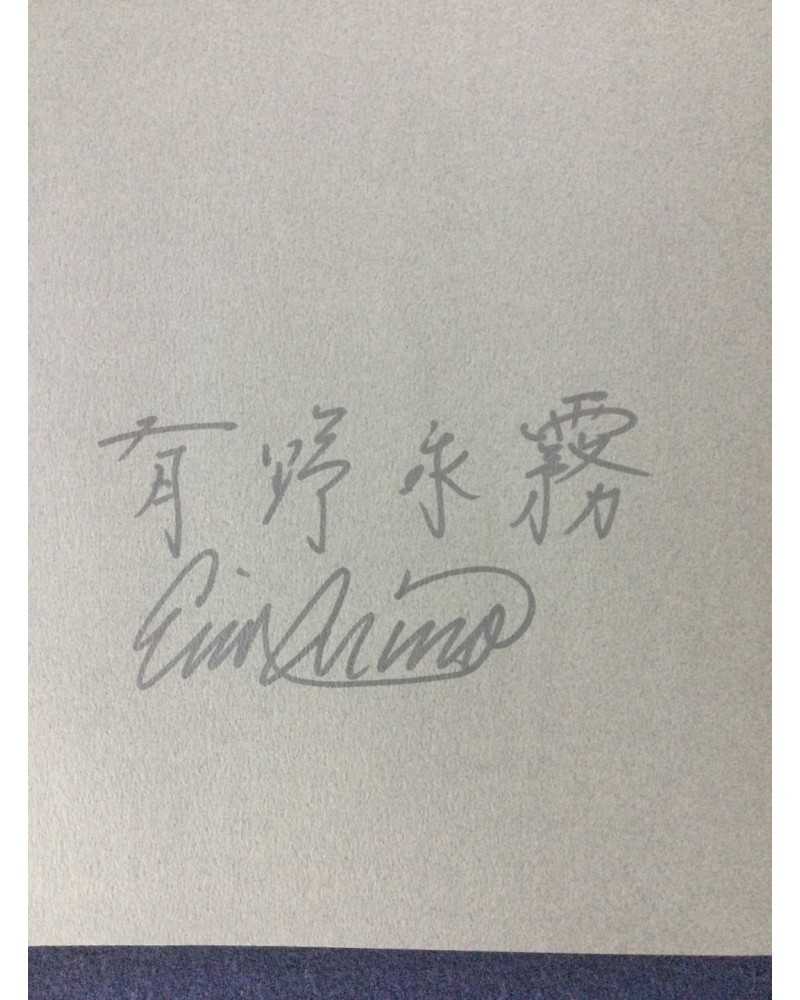 有野永霧
Eim Arino